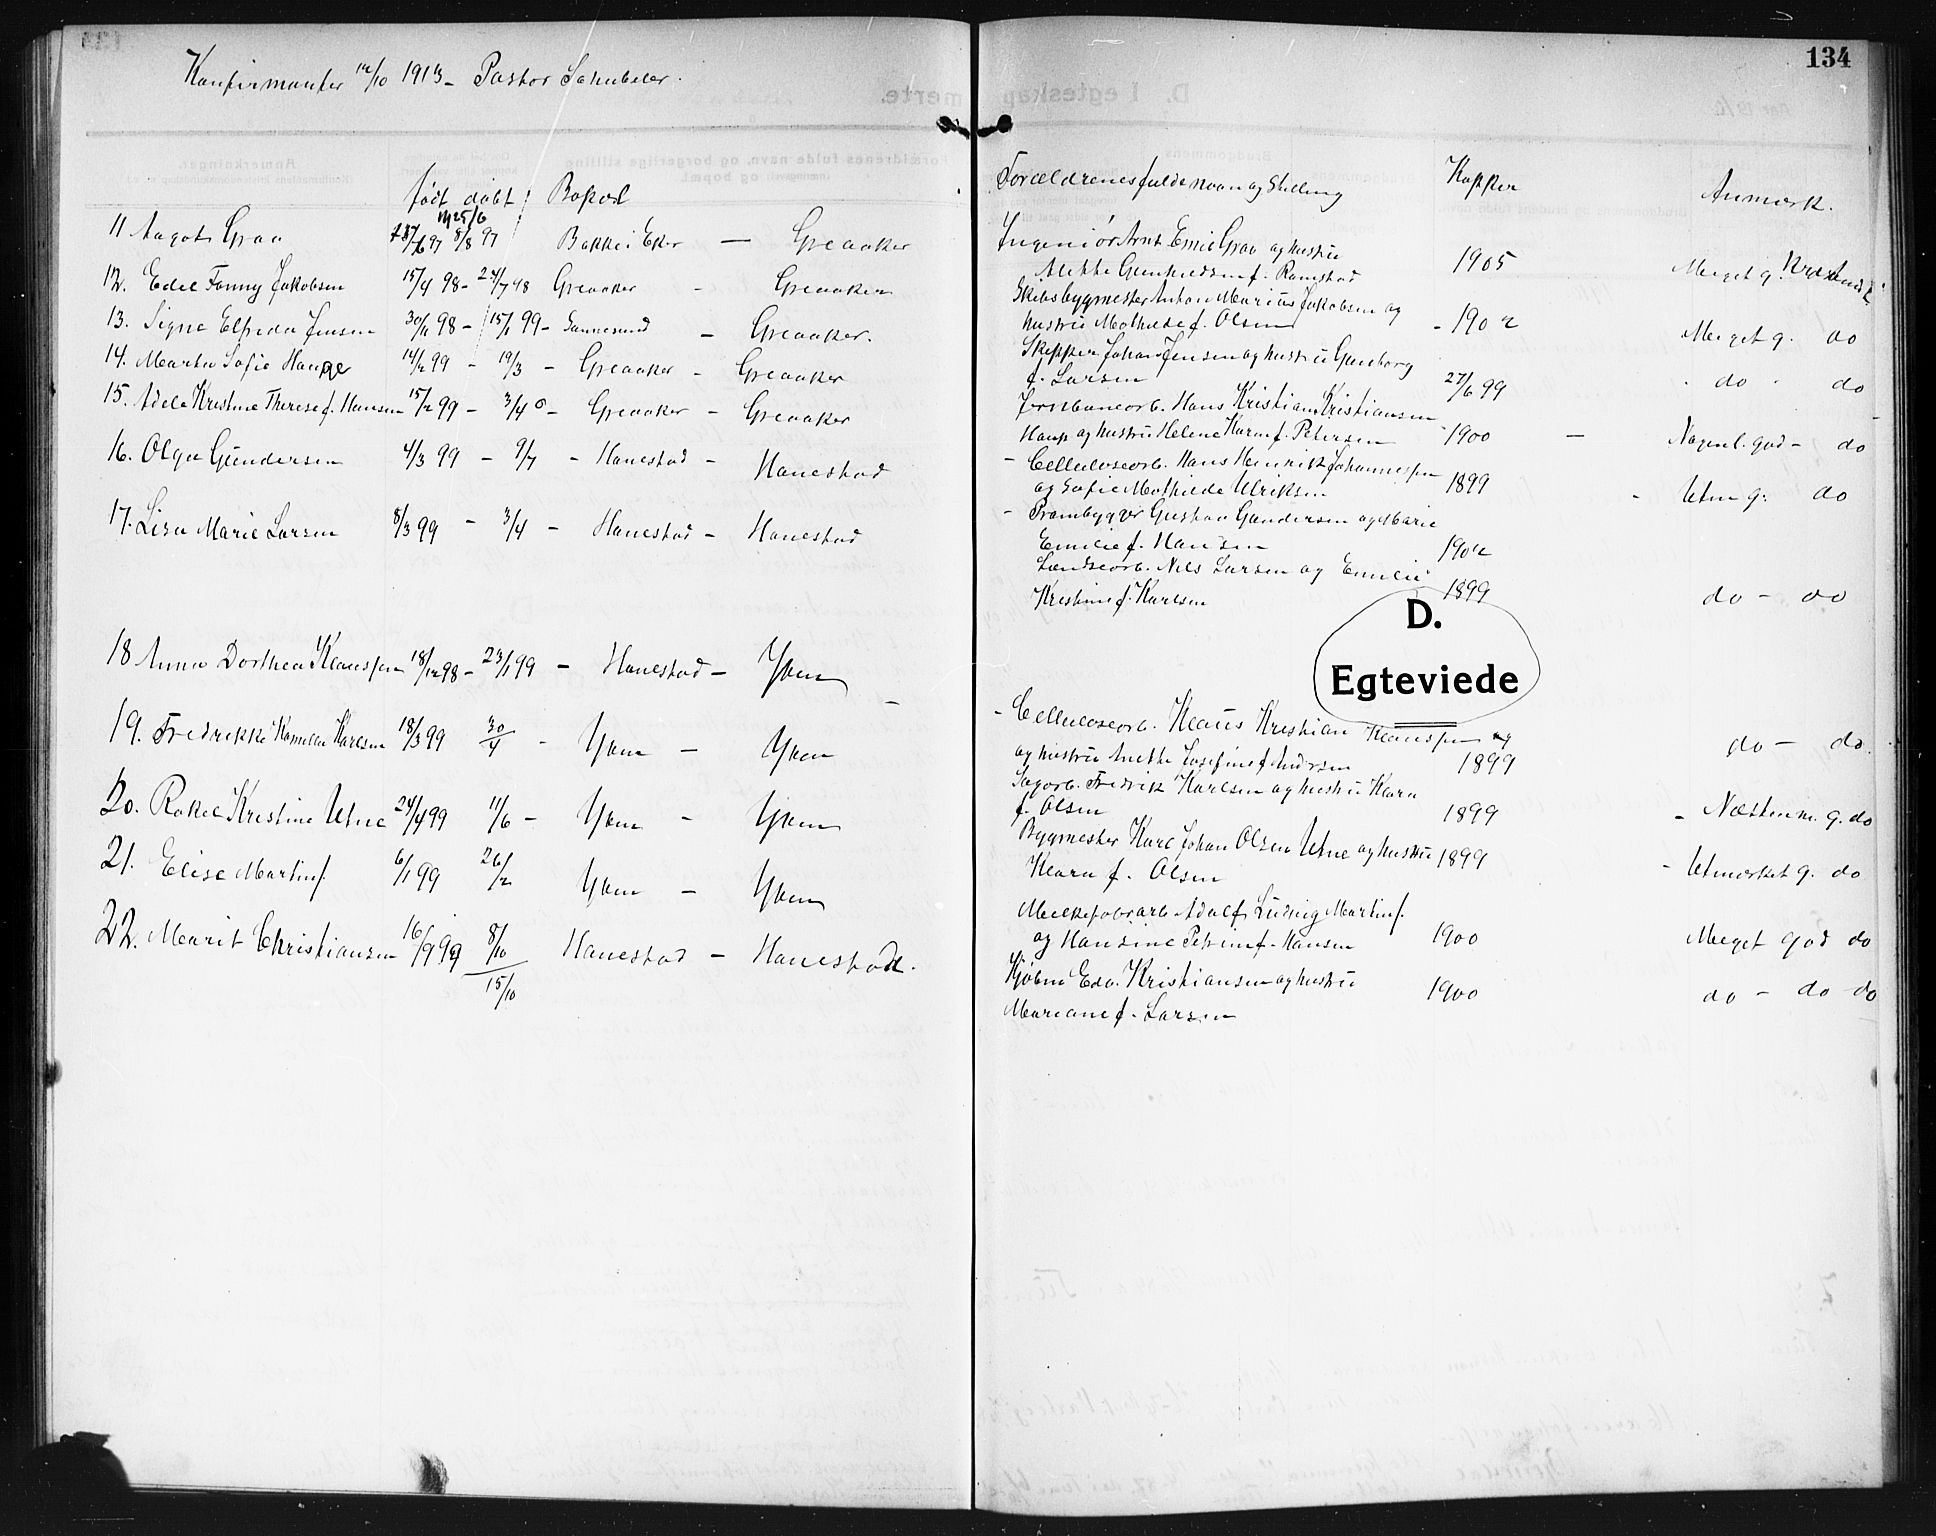 Konfirmanter 12/10 1913 - Pastor Schübeler.
født døbt Bopæl
11 Aagot Graa 97 8/8 97 Bakke i Eker — Greaaker
12. Edel Fanny Jakobsen 15/4 98 - 24/7 98 Greaaker - Greaaker
13. Signe Elfrida Jensen 30/11 98 - 15/1 99 - Sannesund - Greaaker.
14. Martha Sofie Hauge 14/2 99 - 19/3 - Greaaker - Greaaker
15. Adele Kristine Therese f. Hansen 15/2 99 - 3/4 - Greaaker - Greaaker
16. Olga Gundersen 4/3 99 - 9/7 - Hanestad - Hanestad
17. Lisa Marie Larsen 8/3 99 - 3/4 - Hanestad - Hanestad
18 Anna Dorthea Klaussen 18/12 98 - 23/1 99 - Hanestad - Yven
19. Fredrikke Kamilla Karlsen 18/3 99 30/4 - Yven - Yven
20. Rakel Kristine Utne 24/4 99 11/6 - Yven - Yven
21. Elise Martins. 6/1 99 26/2 Yven - Yven
22. Marit Christiansen 16/9 99 8/10 Hanestad - Hanestad.
15/10
134
Forældrenes fulde navn og Stilling Kopper Anmerk.
Ingeniör Arnt Emil Graa og hustru
f. Ramstad 1905 Meget g. Kristendk.
Skibsbygmester Anton Marius Jakobsen og
hustru Mathilde f. Olsen - 1902 Meget g. do
Skipper Johan Jensen og hustru Gunborg
f. Larsen 27/6 99 - do - do
Jernbanearb. Hans Kristian Kristiansen
Haug og hustru Helene Karin f. Petersen 1900 — Nogenl. god - do
- Celluloseorb. Hans Henrik Johannessen
og Sofie Mathilde Ulriksen 1899 - Utm g. do
- Prambygger Gustav Gundersen og Marie
Emilie f. Hansen 1902
Landsearb. Nils Larsen og Emilie
Kristine f. Karlsen 1899 do - do
D.
Egteviede
- Celluloseorb. Klaus Kristian Klaussen og
og hustru Anette Josefine f. Andersen 1899 do - do.
Sagorb. Fredrik Karlsen og hustru Klara
f. Olsen 1899 - Næsten m. g. do
Bygmester Karl Johan Olsen Utne og hustru 1899
Klara f. Olsen - Utmerket g. do
Melkefabrarb. Adolf Ludvig Martins.
og Hansine Petrine f. Hansen 1900 Meget god do
Kjøbm Edv. Kristiansen og hustru
Mariane f. Larsen 1900 do - do do